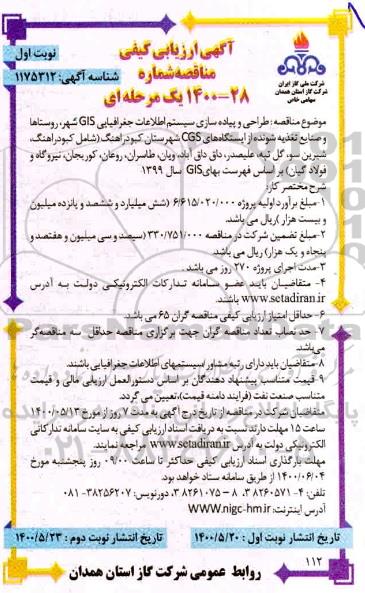 آگهی ارزیابی کیفی
مناقصه شماره
۲۸-۱۴۰۰ یک مرحله ای
نوبت اول
شناسه آگهی: ۱۱۷۵۳۱۲
شرکت ملی گاز ایران
شرکت گاز استان همدان
سهامی خاص
موضوع مناقصه: طراحی و پیاده سازی سیستم اطلاعات جغرافیایی GIS شهر، روستاها
و صنایع تغذیه شونده از ایستگاه‌های CGS شهرستان کبودرآهنگ (شامل کبودرآهنگ،
شیرین سو، گل تپه، علیصدر، داق داق آباد، ویان، طاسران، روعان، کوریجان، نیروگاه و
فولاد گیان) بر اساس فهرست بهای GIS سال ۱۳۹۹
شرح مختصر کار:
۱-مبلغ برآورد اولیه پروژه ۶/۶۱۵/۰۲۰/۰۰۰ (شش میلیارد و ششصد و پانزده میلیون
و بیست هزار) ریال می باشد.
۲-مبلغ تضمین شرکت در مناقصه ۳۳۰/۷۵۱/۰۰۰ (سیصد و سی میلیون و هفتصد و
پنجاه و یک هزار) ریال می باشد.
۳-مدت اجرای پروژه ۲۷۰ روز می باشد.
۴- متقاضیان باید عضو سامانه تدارکات الکترونیکی دولت به آدرس
www.setadiran.ir باشند.
۶-حداقل امتیاز ارزیابی کیفی مناقصه گران ۶۵ می باشد.
۷-حد نصاب تعداد مناقصه گران جهت برگزاری مناقصه حداقل سه مناقصه‌گر
می‌باشد.
۸-متقاضیان باید دارای رتبه مشاور/سیستمهای اطلاعات جغرافیایی باشند.
۹-قیمت متناسب پیشنهاد دهندگان بر اساس دستورالعمل ارزیابی مالی و قیمت
متناسب صنعت نفت (فرایند دامنه قیمت)، تعیین می گردد.
متقاضیان شرکت در مناقصه از تاریخ درج آگهی به مدت ۷ روز از مورخ ۱۴۰۰/۰۵/۱۳
ساعت ۱۵ مهلت دارند نسبت به دریافت اسناد ارزیابی کیفی به سایت سامانه تدارکاتی
الکترونیکی دولت به آدرس www.setadiran.ir مراجعه نمایند.
مهلت بارگذاری اسناد ارزیابی کیفی حداکثر تا ساعت ۰۹/۰۰ روز پنجشنبه مورخ
۱۴۰۰/۰۶/۰۴ از طریق سامانه ستاد خواهد بود.
تلفن: ۴- ۳۸۲۶۰۵۷۱، ۸ - ۳۸۲۶۱۰۷۵، دورنویس: ۳۸۲۵۶۲۰۷-۰۸۱
آدرس اینترنت: WWW.nigc-hm.ir
تاریخ انتشار نوبت اول : ۱۴۰۰/۵/۲۰
تاریخ انتشار نوبت دوم : ۱۴۰۰/۵/۲۳
۱۱۲
روابط عمومی شرکت گاز استان همدان